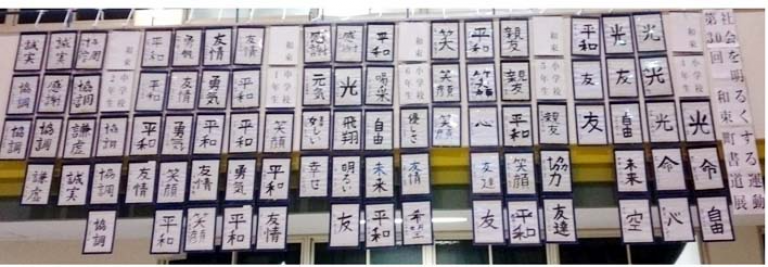 社会を明るくする運動
第30回 和束町書道展
和束
光
光
平和
親友
平和
笑
和束
平和
感謝
感謝
和束
友情
友情
勇気
平和
和束
協調
誠実
誠実
光
友
友
親友
笑顔
笑顔
喝采
光
元気
平和
勇気
友情
平和
協調
感謝
協調
光
光
自由
友
親友
平和
心
笑顔
優しさ
自由
飛翔
嬉しい
笑顔
平和
平和
勇気
平和
協調
謙虚
協調
協調
命
命
未来
協力
笑顔
友達
友情
未来
明るい
幸せ
平和
勇気
友情
笑顔
友情
協調
誠実
謙虚
自由
心
空
友達
平和
友
希望
平和
友
友情
平和
笑顔
平和
協調